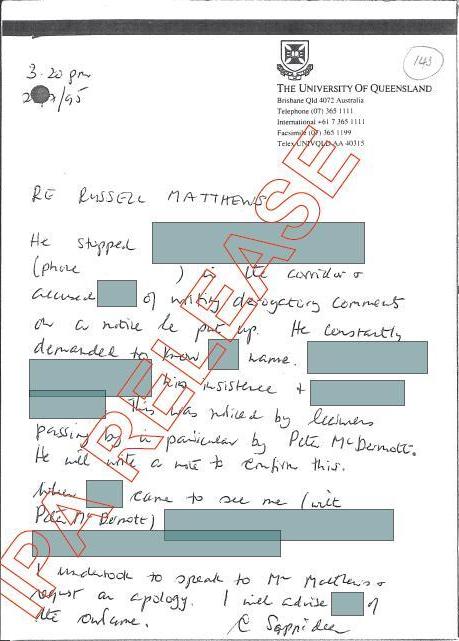 143
3.20 pm
2 /95
THE UNIVERSITY OF QUEENSLAND
Brisbane Qld 4072 Australia
Telephone (07) 365 1111
International +61 7 365 1111
Facsimile (07) 365 1199
Telex UNIVQLD AA 40315
RE RUSSELL MATTHEWS
He stopped
(phone ) in the corridor &
accused of writing derogatory comments
on a notice he put up. He constantly
demanded to know name.
his insistence &
This was noticed by lecturers
passing by in particular by Peter McDermott.
He will write a note to confirm this.
When came to see me (with
Peter McDermott)
I undertook to speak to Mr Matthews &
request an apology. I will advise of
the outcome.
C Sappideen
IPA RELEASE